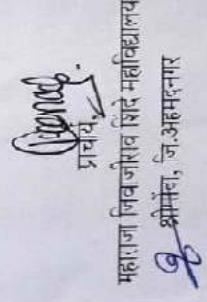 प्राचार्य,
महाराजा जिवाजीराव शिंदे महाविद्यालय
श्रीगोंदा, जि.अहमदनगर